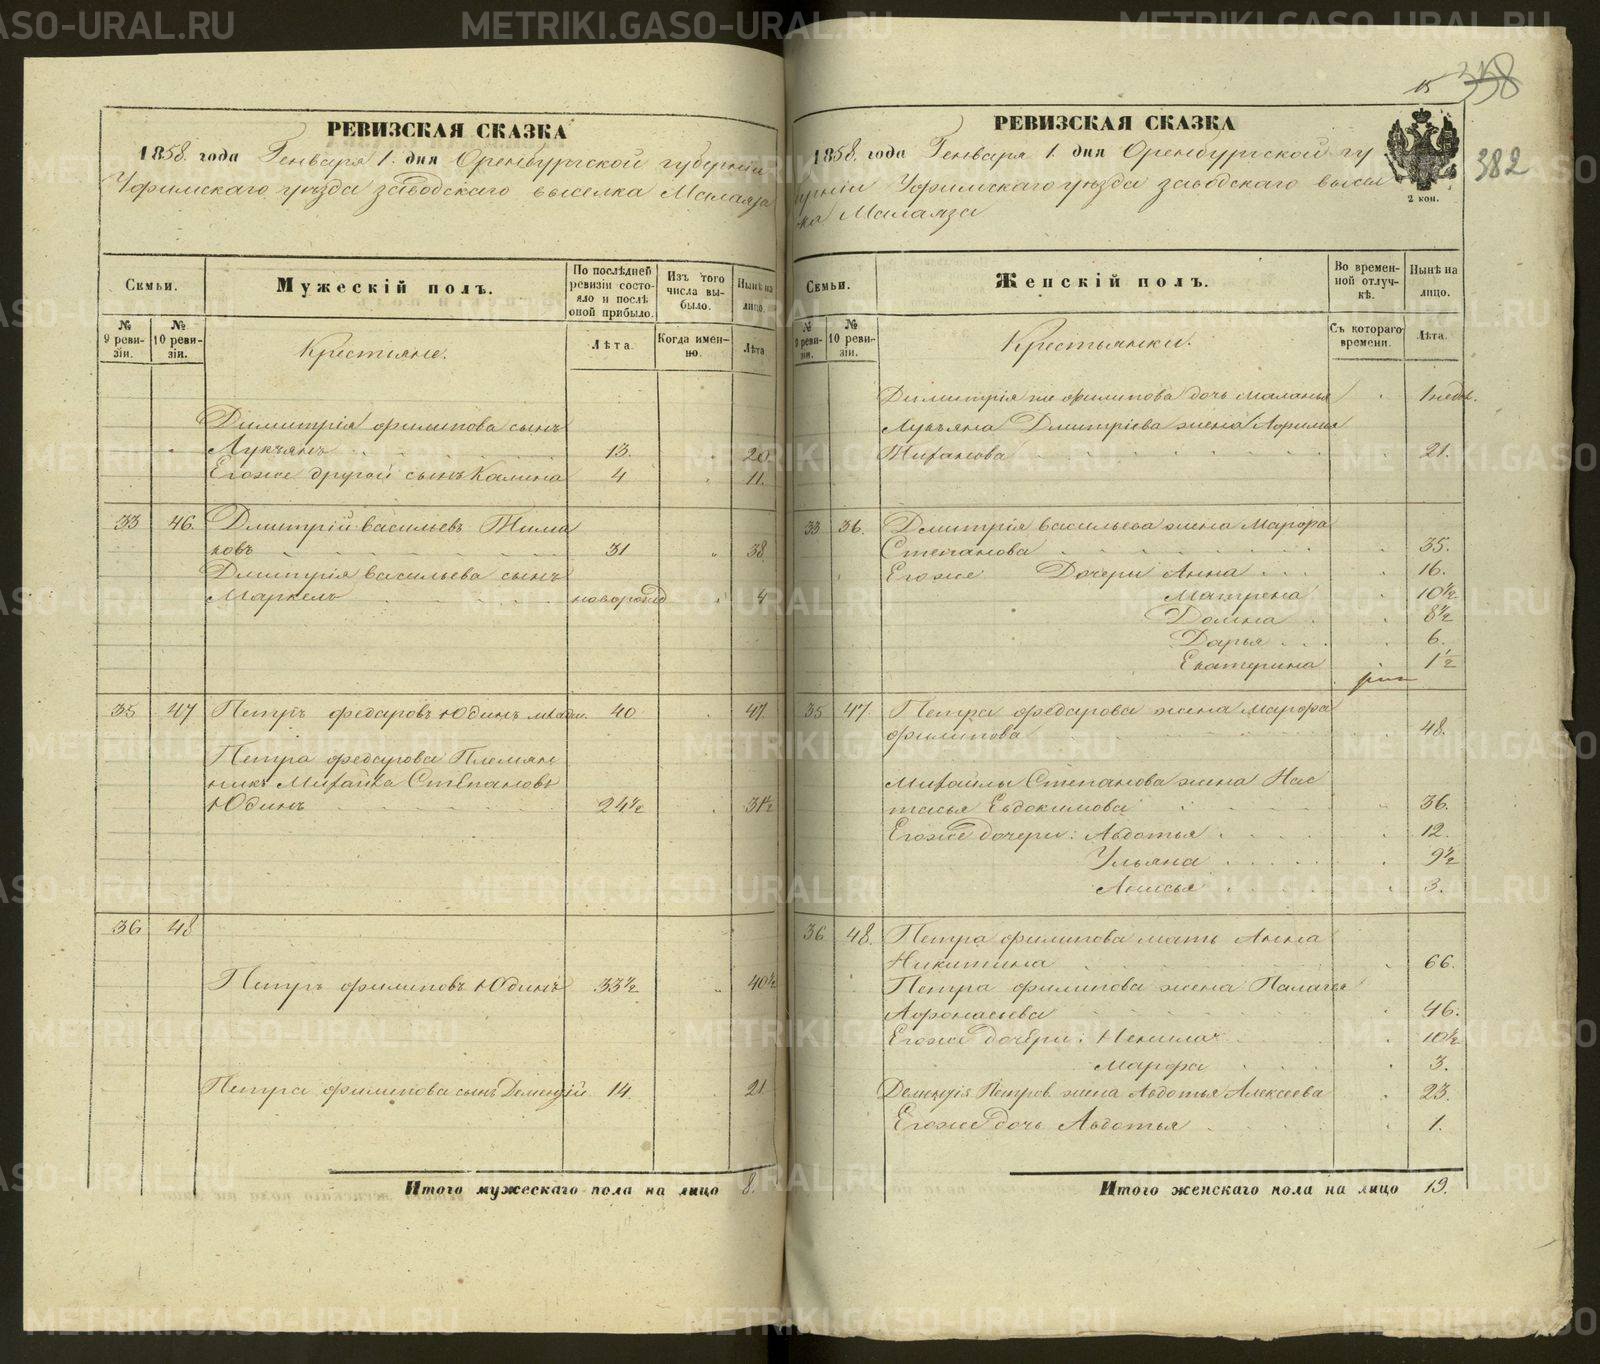 РЕВИЗСКАЯ СКАЗКА
1858. года Генваря 1. дня Оренбургской губернiи
Уфимскаго уѣзда заводскаго выселка Малаяза
Семьи.
Мужескiй полъ.
По послѣдней ревизiи состояло и послѣ оной прибыло.
Изъ того числа выбыло.
Нынѣ на лицо.
№ 9 ревизiи.
№ 10 ревизiи.
Крестьяне.
Лѣта.
Когда именно.
Лѣта
Димитрiя Филипова сынъ
Лукьянъ 13. 20.
Егоже другой сынъ Калина 4 11.
33 46. Дмитрiй Васильевъ Тима
ковъ 31 38
Дмитрiя Васильева сынъ
Маркелъ 4
35 47 Петръ Федаровъ Юдинъ 40 47.
Петра Федарова Племян
никъ Михайла Степановъ
Юдинъ 24½ 31½
36 48
Петръ Филиповъ Юдинъ 33½ 40½
Петра Филипова сынъ Деменьтiй 14. 21
Итого мужескаго пола на лицо 8.
15 358
382
РЕВИЗСКАЯ СКАЗКА
1858. года Генваря 1. дня Оренбургской гу
бернiи Уфимскаго уѣзда заводскаго высел
ка Малаяза
2 коп.
Семьи.
Женскiй полъ.
Во временной отлучкѣ.
Нынѣ на лицо.
№ 9 ревизiи.
№ 10 ревизiи.
Крестьянки.
Съ котораго времени.
Лѣта.
Димитрiя же Филипова дочь Маланья
Лукьяна Дмитрiева жена Афимья
21.
33 36. Дмитрiя Васильева жена Марфа
Степанова 35.
Егоже Дочери Анна 16.
Матрена 10½
Домна 8½
Дарья 6.
Екатерина 1½
35 47. Петра Федарова жена Марфа
Филипова 48.
Михайлы Степанова жена Нас
тасья Евдокимова 36.
Егоже дочери: Авдотья 12.
Ульяна 9½
Анисья 3.
36 48. Петра Филипова мать Анна
Никитина 66.
Петра Филипова жена Палагея
Афонасьева 46.
Егоже дочери: Ненила 10½
Марфа 3.
Деменьтiя Петров. жена Авдотья Алексеева 23.
Егоже дочь Авдотья 1.
Итого женскаго пола на лицо 19.
METRIKI.GASO-URAL.RU